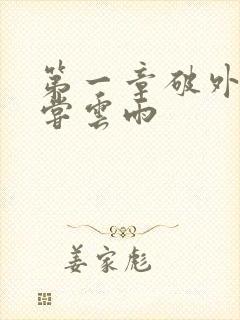 第一章破外
嘗雲雨
姜家彪